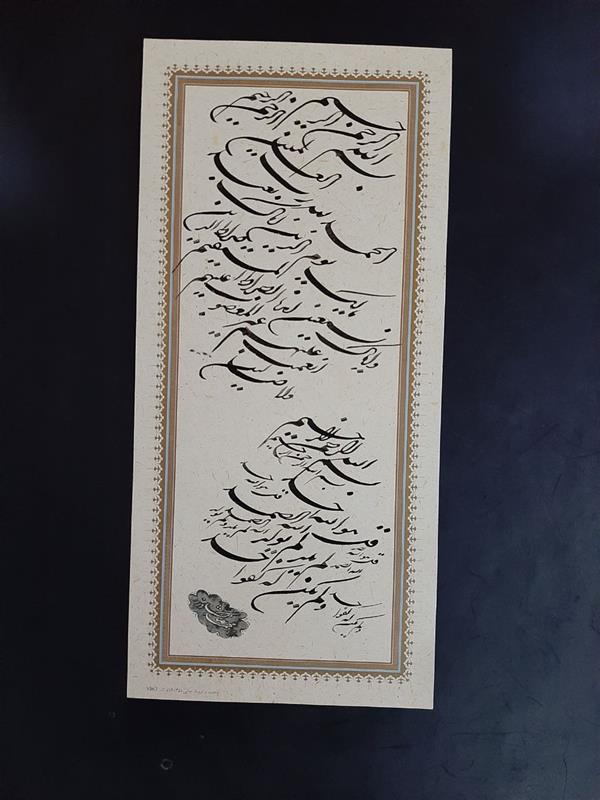 بسم الله الرحمن الرحيم
الحمد لله رب العالمين
الرحمن الرحيم
مالك يوم الدين اياك نعبد
واياك نستعين اهدنا الصراط المستقيم صراط الذين
انعمت عليهم غير المغضوب عليهم
ولا الضالين
بسم الله الرحمن الرحيم
قل هو الله احد
الله الصمد
لم يلد ولم يولد
ولم يكن له كفوا احد